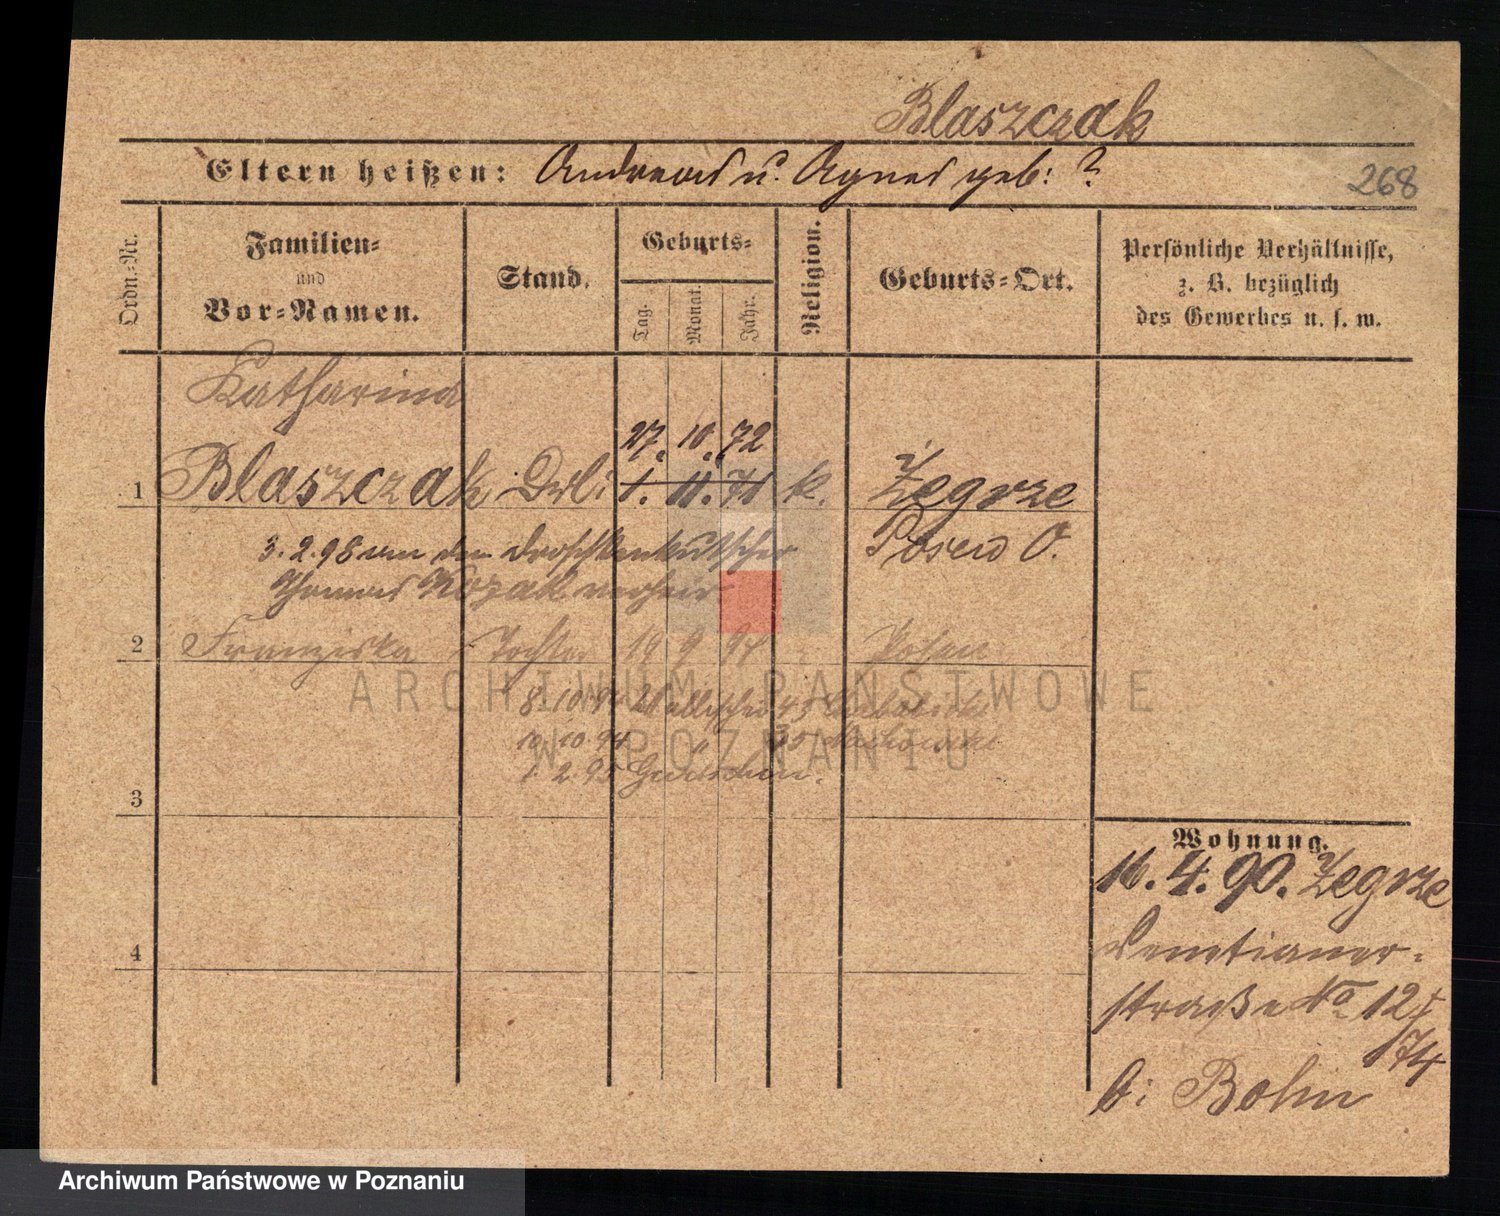 Blaszczak
Eltern heißen: Andreas u. Agnes geb: ?
268
Ordn.-Nr.
Familien-
und
Vor-Namen.
Stand.
Geburts-
Tag.
Monat.
Jahr.
Religion.
Geburts-Ort.
Persönliche Verhältnisse,
z. B. bezüglich
des Gewerbes u. s. w.
Katharina
27. 10. 72
1 Blaszczak 1. 11. 71 k. Żegrze
3. 2. 98 an den Droschkenkutscher Posen O.
Thomas Kozak verheir
2 Franziska Tochter 19 9 94 Posen
8. 10. 94 Wallischei 45
10. 10. 94 " 35
1. 2. 95
3
4
Wohnung.
16. 4. 90. Żegrze
Venetianer-
straße No 12
74
b: Bohn
ARCHIWUM PAŃSTWOWE
W POZNANIU
Archiwum Państwowe w Poznaniu